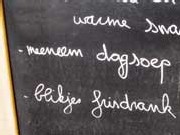 warme sna
- meeneem dagsoep
- blikjes frisdrank